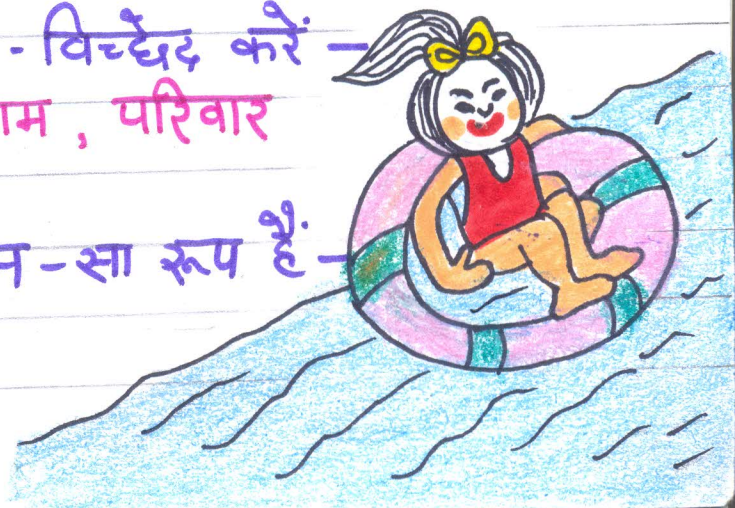 -विच्छेद करें -
ाम , परिवार
न-सा रूप हैं-